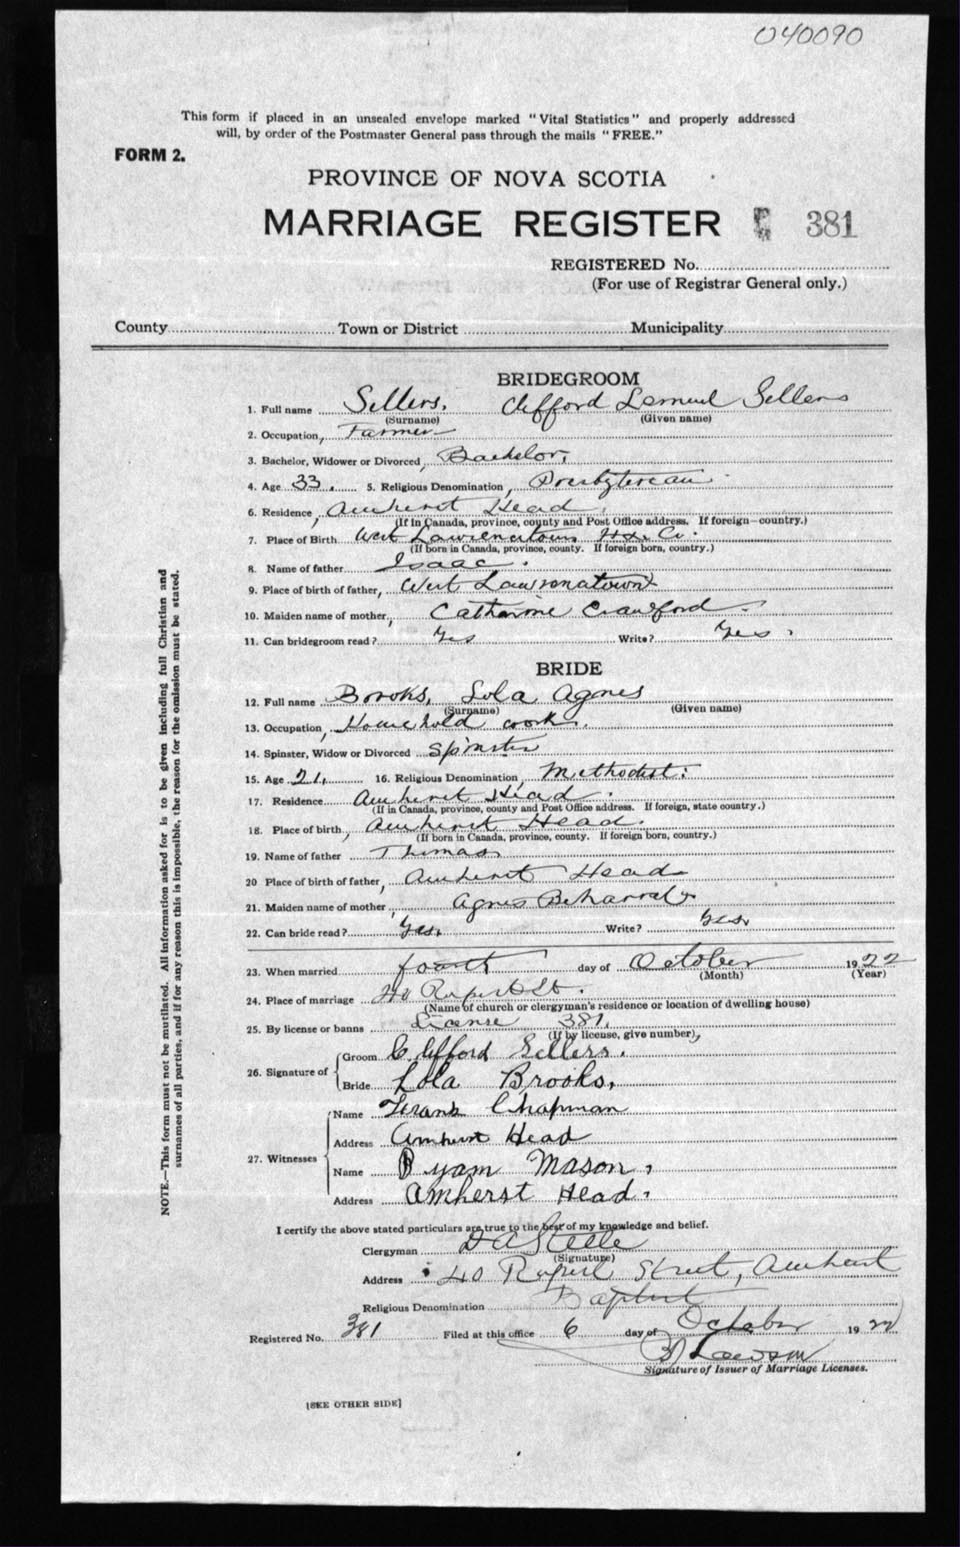 040090
This form if placed in an unsealed envelope marked "Vital Statistics" and properly addressed
will, by order of the Postmaster General pass through the mails "FREE."
FORM 2.
PROVINCE OF NOVA SCOTIA
MARRIAGE REGISTER 381
REGISTERED No.
(For use of Registrar General only.)
County Town or District Municipality
BRIDEGROOM
1. Full name Sellers, Clifford Lemuel Sellers
(Surname) (Given name)
2. Occupation, Farmer
3. Bachelor, Widower or Divorced, Bachelor,
4. Age 33. 5. Religious Denomination, Presbyterean
6. Residence, Amherst Head,
(If in Canada, province, county and Post Office address. If foreign—country.)
7. Place of Birth West Lawrencetown Hx. Co.
(If born in Canada, province, county. If foreign born, country.)
8. Name of father Isaac.
9. Place of birth of father, West Lawrencetown
10. Maiden name of mother, Catharine Crawford.
11. Can bridegroom read? Yes Write? Yes.
BRIDE
12. Full name Brooks, Lola Agnes
(Surname) (Given name)
13. Occupation, Household work.
14. Spinster, Widow or Divorced Spinster
15. Age 21, 16. Religious Denomination, Methodist.
17. Residence Amherst Head.
(If in Canada, province, county and Post Office address. If foreign, state country.)
18. Place of birth, Amherst Head.
(If born in Canada, province, county. If foreign born, country.)
19. Name of father Thomas
20 Place of birth of father, Amherst Head
21. Maiden name of mother, Agnes
22. Can bride read? Yes. Write? Yes.
23. When married fourth day of October 1922
(Month) (Year)
24. Place of marriage 40 Rupert St.
(Name of church or clergyman's residence or location of dwelling house)
25. By license or banns License 381,
(If by license, give number),
26. Signature of Groom Clifford Sellers.
Bride Lola Brooks,
27. Witnesses Name Frank Chapman
Address Amherst Head
Name Byam Mason,
Address Amherst Head.
I certify the above stated particulars are true to the best of my knowledge and belief.
Clergyman D A Steele
(Signature)
Address 40 Rupert Street, Amherst
Religious Denomination Baptist
Registered No. 381 Filed at this office 6 day of October 1922
Lawson
Signature of Issuer of Marriage Licenses.
[SEE OTHER SIDE]
NOTE.—This form must not be mutilated. All information asked for is to be given including full Christian and
surnames of all parties, and if for any reason this is impossible, the reason for the omission must be stated.